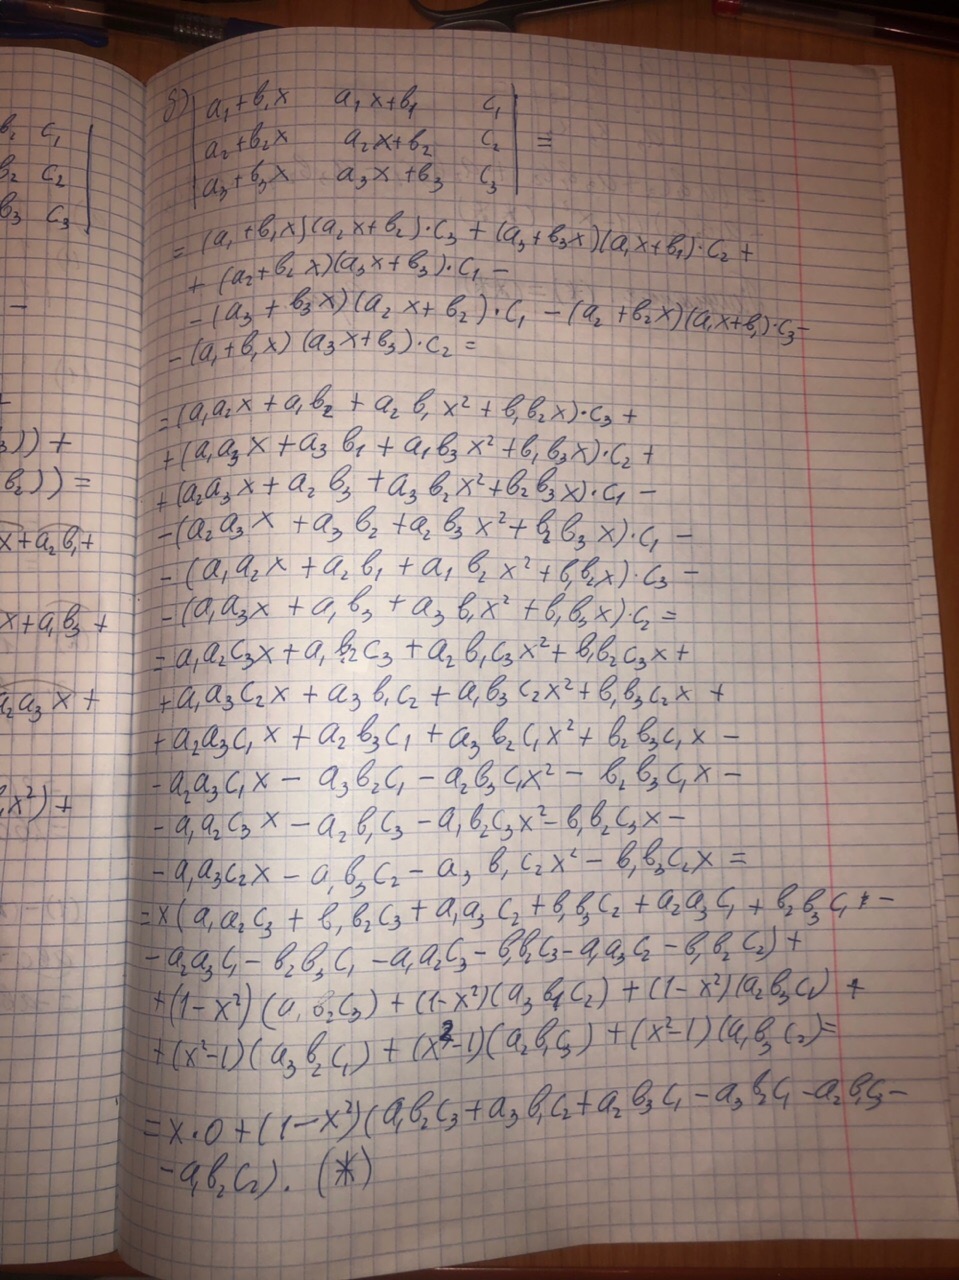 б) | a₁+b₁x a₁x+b₁ c₁ |
| a₂+b₂x a₂x+b₂ c₂ | =
| a₃+b₃x a₃x+b₃ c₃ |
= (a₁+b₁x)(a₂x+b₂)·c₃ + (a₃+b₃x)(a₁x+b₁)·c₂ +
+ (a₂+b₂x)(a₃x+b₃)·c₁ −
− (a₃+b₃x)(a₂x+b₂)·c₁ − (a₂+b₂x)(a₁x+b₁)·c₃ −
− (a₁+b₁x)(a₃x+b₃)·c₂ =
= (a₁a₂x + a₁b₂ + a₂b₁x² + b₁b₂x)·c₃ +
+ (a₁a₃x + a₃b₁ + a₁b₃x² + b₁b₃x)·c₂ +
+ (a₂a₃x + a₂b₃ + a₃b₂x² + b₂b₃x)·c₁ −
− (a₂a₃x + a₃b₂ + a₂b₃x² + b₂b₃x)·c₁ −
− (a₁a₂x + a₂b₁ + a₁b₂x² + b₁b₂x)·c₃ −
− (a₁a₃x + a₁b₃ + a₃b₁x² + b₁b₃x)·c₂ =
= a₁a₂c₃x + a₁b₂c₃ + a₂b₁c₃x² + b₁b₂c₃x +
+ a₁a₃c₂x + a₃b₁c₂ + a₁b₃c₂x² + b₁b₃c₂x +
+ a₂a₃c₁x + a₂b₃c₁ + a₃b₂c₁x² + b₂b₃c₁x −
− a₂a₃c₁x − a₃b₂c₁ − a₂b₃c₁x² − b₂b₃c₁x −
− a₁a₂c₃x − a₂b₁c₃ − a₁b₂c₃x² − b₁b₂c₃x −
− a₁a₃c₂x − a₁b₃c₂ − a₃b₁c₂x² − b₁b₃c₂x =
= x(a₁a₂c₃ + b₁b₂c₃ + a₁a₃c₂ + b₁b₃c₂ + a₂a₃c₁ + b₂b₃c₁ −
− a₂a₃c₁ − b₂b₃c₁ − a₁a₂c₃ − b₁b₂c₃ − a₁a₃c₂ − b₁b₂c₂) +
+ (1−x²)(a₁b₂c₃) + (1−x²)(a₃b₁c₂) + (1−x²)(a₂b₃c₁) +
+ (x²−1)(a₃b₂c₁) + (x²−1)(a₂b₁c₃) + (x²−1)(a₁b₃c₂) =
= x·0 + (1−x²)(a₁b₂c₃ + a₃b₁c₂ + a₂b₃c₁ − a₃b₂c₁ − a₂b₁c₃ −
− a₁b₂c₂). (*)